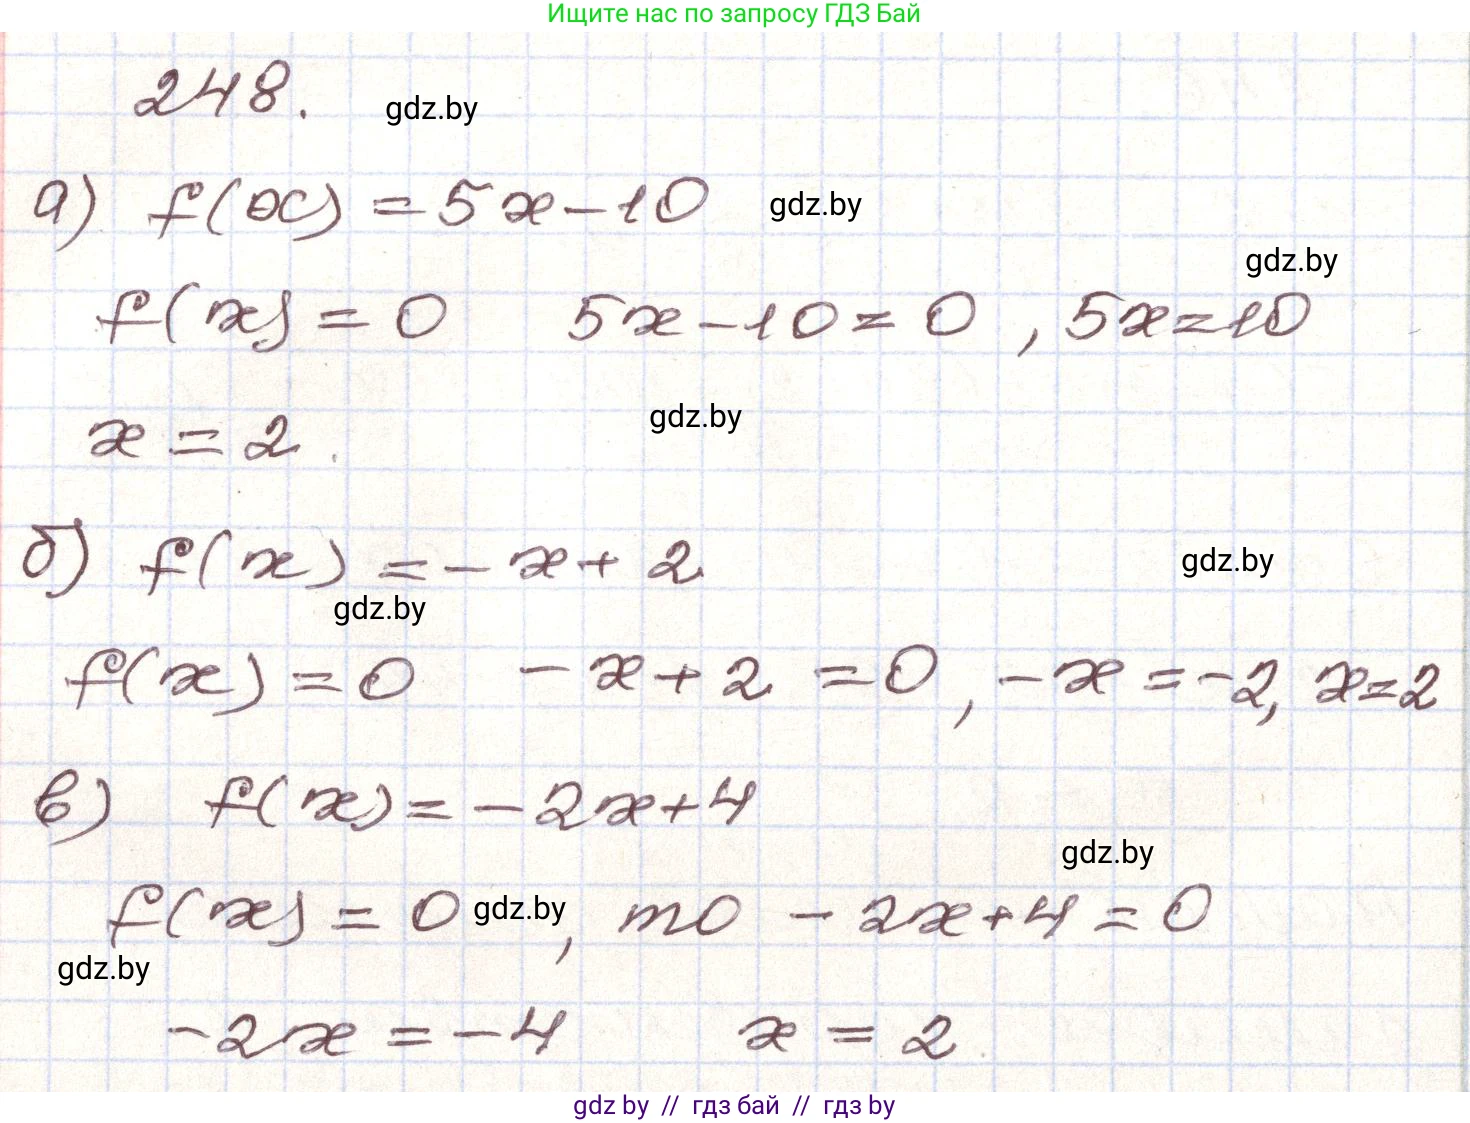 Ищите нас по запросу ГДЗ Бай
248. gdz.by
а) f(x) = 5x - 10 gdz.by
gdz.by
f(x) = 0 5x - 10 = 0 , 5x = 10
x = 2. gdz.by
б) f(x) = -x + 2 gdz.by
gdz.by
f(x) = 0 -x + 2 = 0, -x = -2, x = 2
в) f(x) = -2x + 4
gdz.by
f(x) = 0 gdz.by, то -2x + 4 = 0
gdz.by
-2x = -4 x = 2
gdz by // гдз бай // гдз by